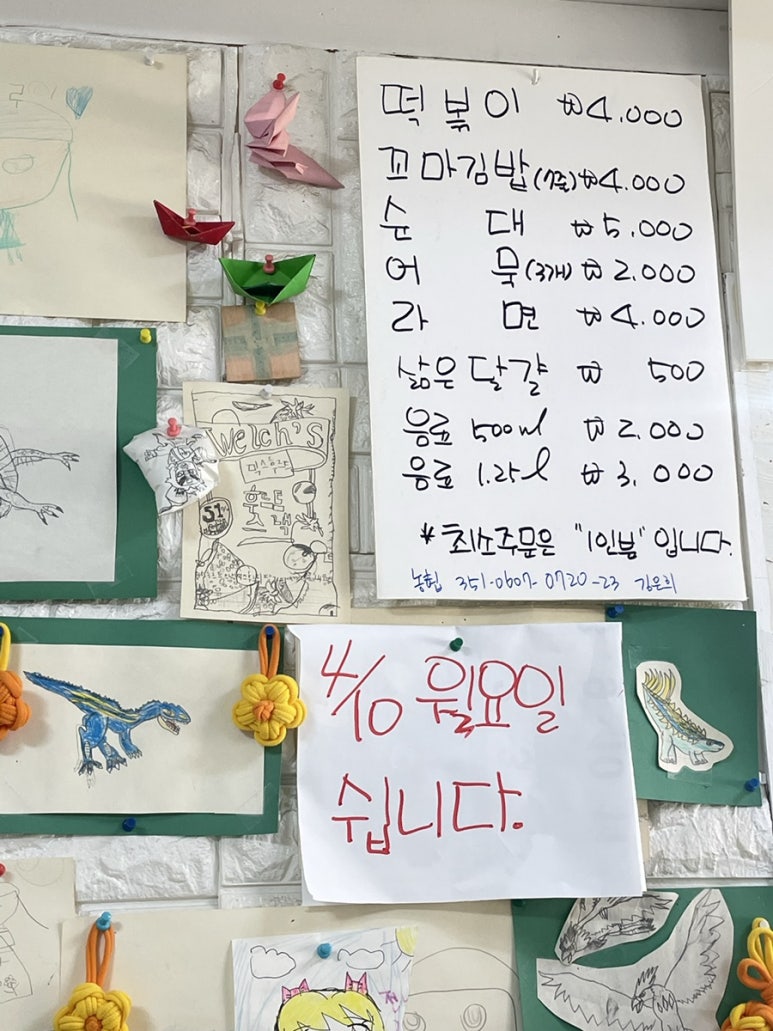 떡볶이 ₩4.000
꼬마김밥(7줄)₩4.000
순 대 ₩5.000
어 묵(3개) ₩2.000
라 면 ₩4.000
삶은 달걀 ₩ 500
음료 500ml ₩2.000
음료 1.25l ₩3.000
*최소주문은 "1인분"입니다.
농협 351-0607-0720-23 김은희
Welch's
51
4/10 월요일
쉽니다.